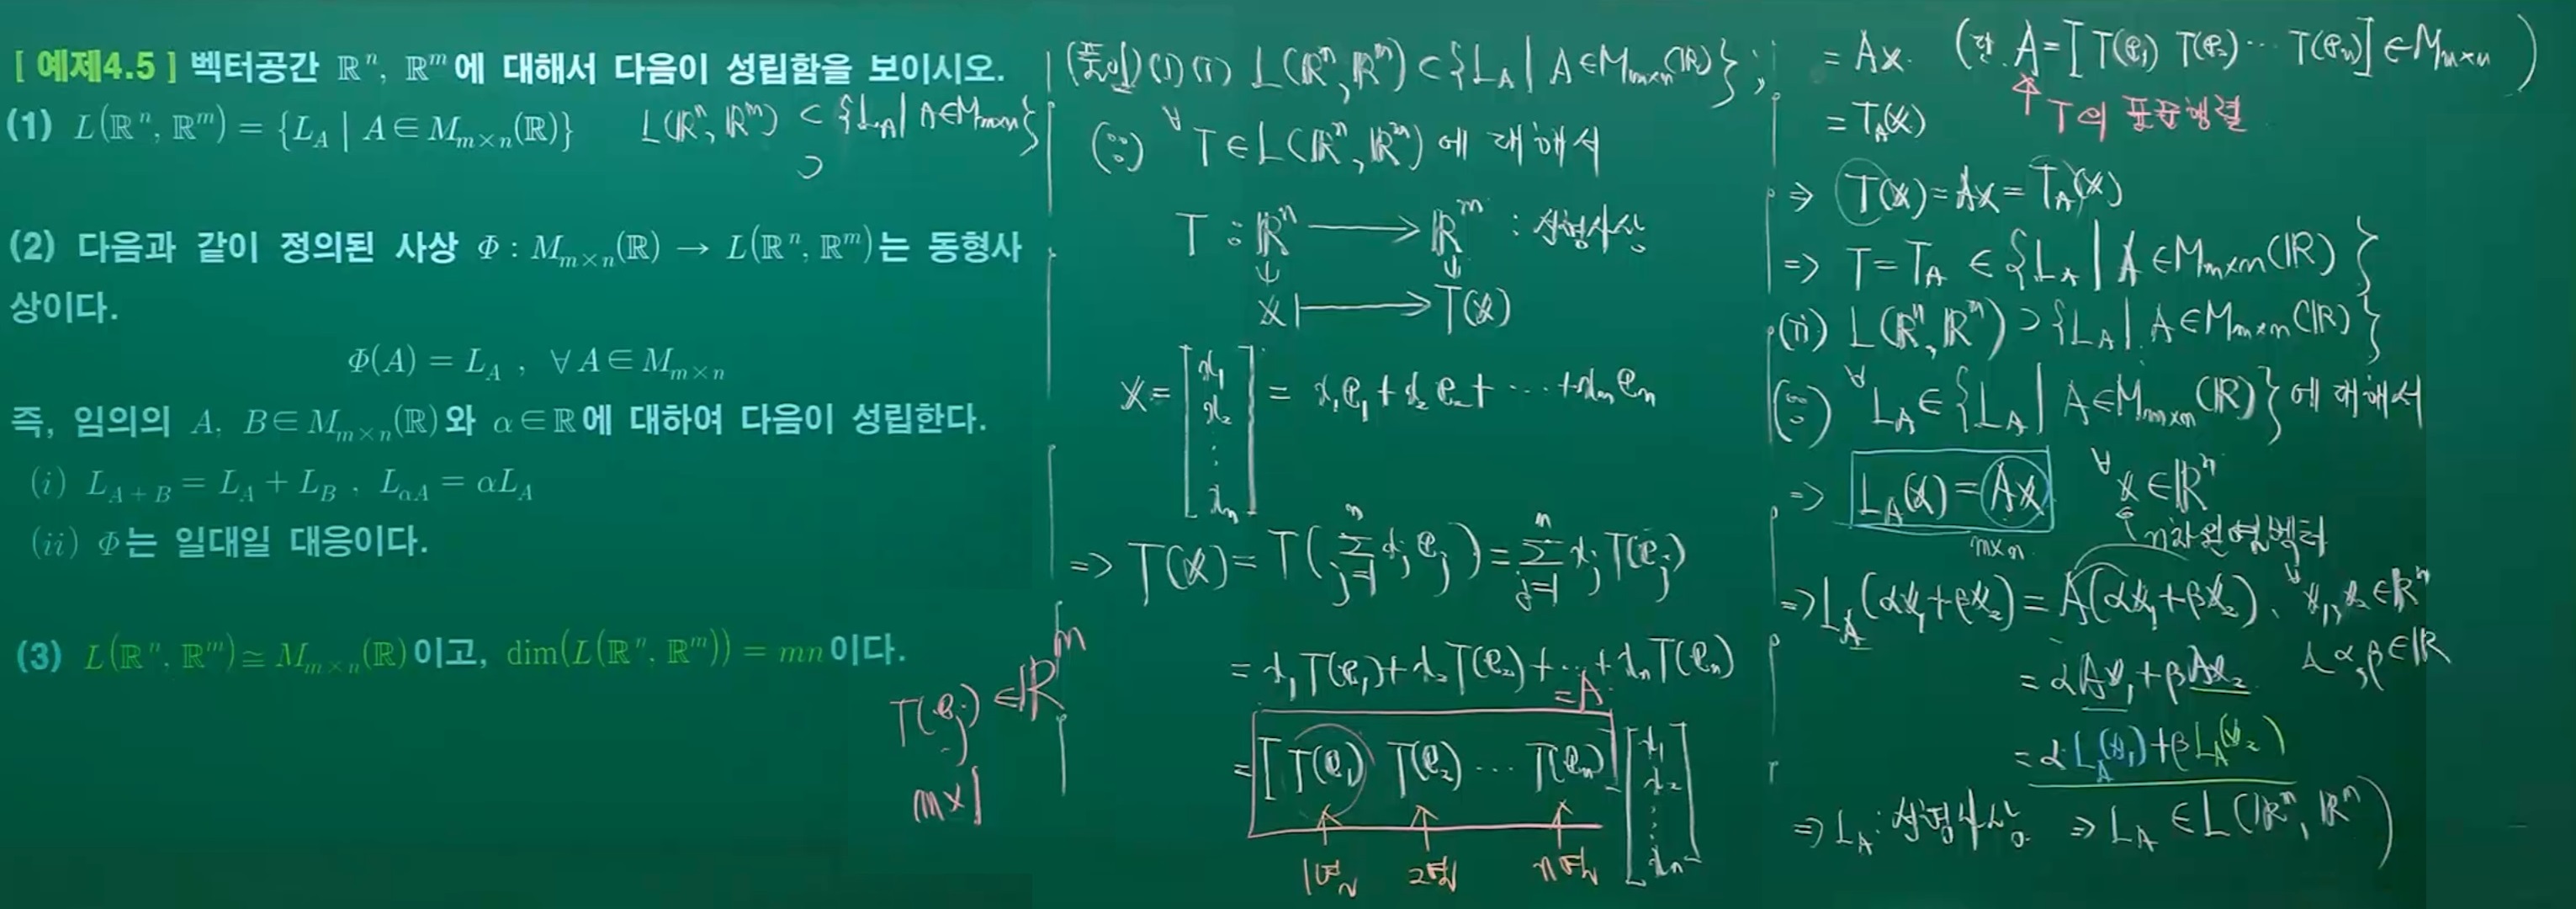 [ 예제4.5 ] 벡터공간 ℝⁿ, ℝᵐ에 대해서 다음이 성립함을 보이시오.
(1) L(ℝⁿ, ℝᵐ) = {L_A | A ∈ M_{m×n}(ℝ)}
L(ℝⁿ, ℝᵐ) ⊂ {L_A | A∈M_{m×n}}
⊃
(2) 다음과 같이 정의된 사상 Φ : M_{m×n}(ℝ) → L(ℝⁿ, ℝᵐ)는 동형사
상이다.
Φ(A) = L_A , ∀ A ∈ M_{m×n}
즉, 임의의 A, B ∈ M_{m×n}(ℝ)와 α ∈ ℝ에 대하여 다음이 성립한다.
(i) L_{A+B} = L_A + L_B , L_{αA} = αL_A
(ii) Φ는 일대일 대응이다.
(3) L(ℝⁿ, ℝᵐ) ≅ M_{m×n}(ℝ)이고, dim(L(ℝⁿ, ℝᵐ)) = mn이다.
T(e_j) ∈ ℝᵐ
m×1
(풀이) (1) (i) L(ℝⁿ, ℝᵐ) ⊂ {L_A | A∈M_{m×n}(ℝ)} ;
(∵) ∀T∈L(ℝⁿ, ℝᵐ)에 대해서
T : ℝⁿ → ℝᵐ : 선형사상
x ↦ T(x)
x = [x₁ x₂ ⋮ xₙ] = x₁e₁ + x₂e₂ + ⋯ + xₙeₙ
⇒ T(x) = T(∑_{j=1}^{n} x_j e_j) = ∑_{j=1}^{n} x_j T(e_j)
= x₁T(e₁) + x₂T(e₂) + ⋯ + xₙT(eₙ)
= A
= [T(e₁) T(e₂) ⋯ T(eₙ)] [x₁ x₂ ⋮ xₙ]
1열 2열 n열
= Ax. (단, A = [T(e₁) T(e₂) ⋯ T(eₙ)] ∈ M_{m×n})
↑ T의 표준행렬
= T_A(x)
⇒ T(x) = Ax = T_A(x)
⇒ T = T_A ∈ {L_A | A ∈ M_{m×n}(ℝ)}
(ii) L(ℝⁿ, ℝᵐ) ⊃ {L_A | A∈M_{m×n}(ℝ)}
(∵) ∀L_A ∈ {L_A | A∈M_{m×n}(ℝ)}에 대해서
⇒ L_A(x) = Ax ∀x ∈ ℝⁿ
m×n n차원 열벡터
⇒ L_A(αx₁+βx₂) = A(αx₁+βx₂), ∀x₁, x₂ ∈ ℝⁿ
= αAx₁ + βAx₂ α, β ∈ ℝ
= αL_A(x₁) + βL_A(x₂)
⇒ L_A : 선형사상 ⇒ L_A ∈ L(ℝⁿ, ℝᵐ)